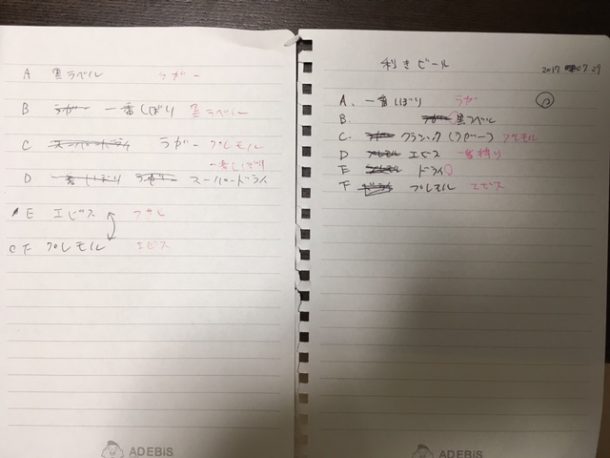 A 黒ラベル ラガー
B ラガー 一番しぼり 黒ラベル
C スーパードライ ラガー プレモル
一番しぼり
D 一番しぼり ラガー スーパードライ
E エビス
F プレモル エビス
ADEBiS
利きビール 2017
A、一番しぼり ラガー
B. ラガー 黒ラベル
C. ラガー クラシック(ラガー) プレモル
D プレモル エビス 一番搾り
E プレモル ドライ
F ドライ プレモル エビス
ADEBiS